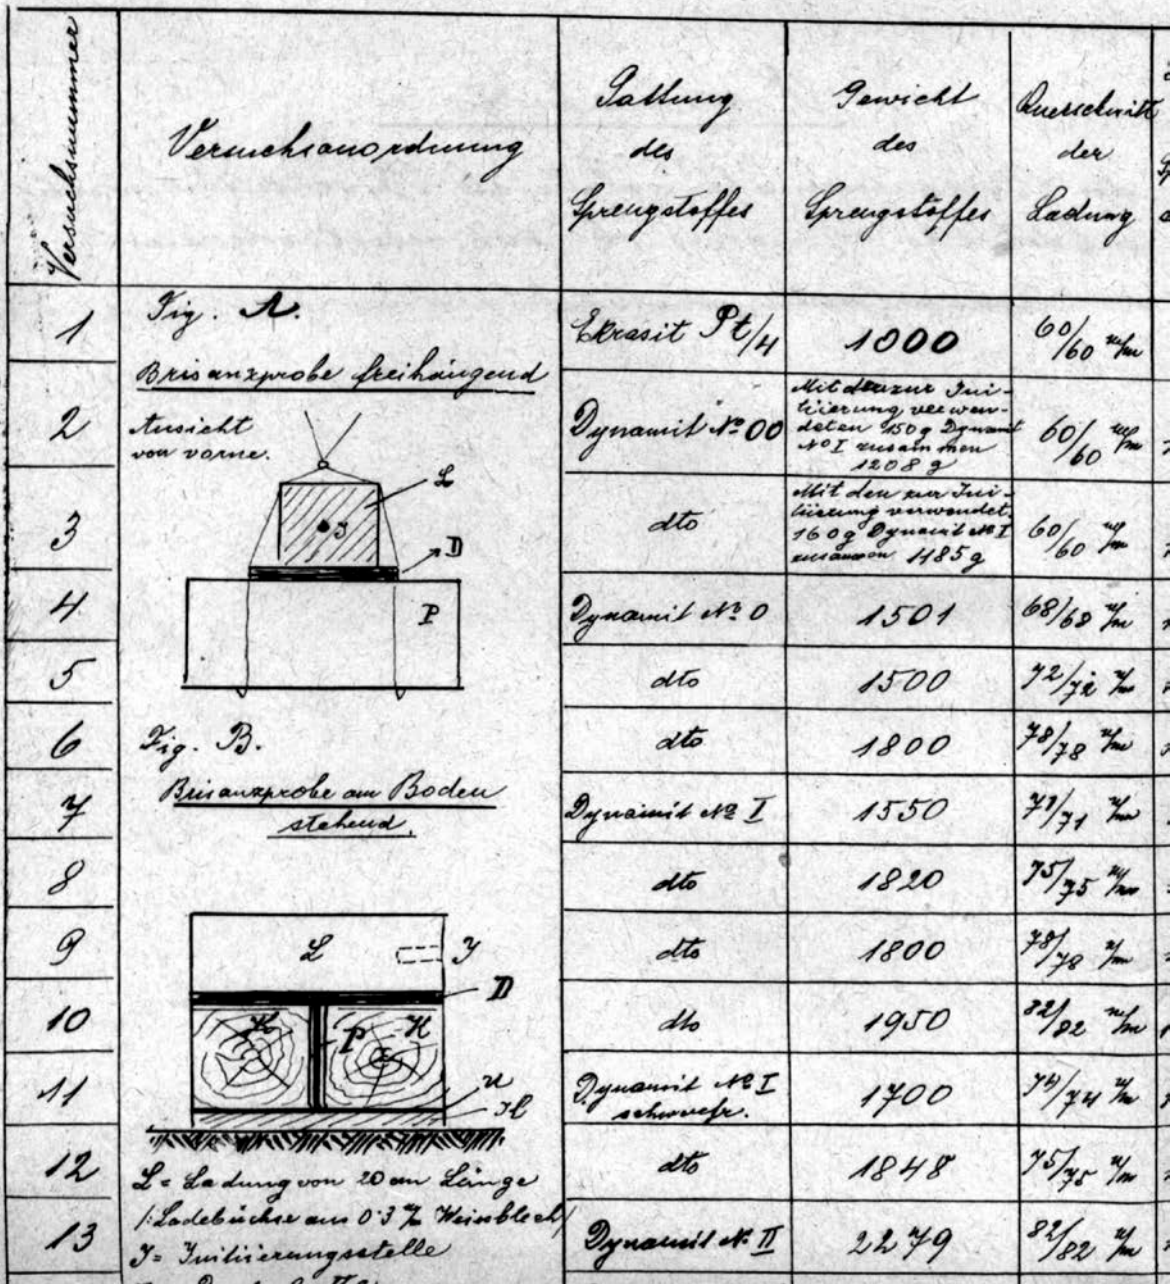 Versuchsnummer
Versuchsanordnung
Gattung
des
Sprengstoffes
Gewicht
des
Sprengstoffes
Querschnitt
der
Ladung
1
Fig. A.
Ekrasit Pt/4
1000
60/60 m/m
Brisanzprobe freihängend
2
Ansicht
von vorne.
Dynamit No 00
Mit der zur Ini-
tiierung verwen-
deten 150 g Dynamit
No I zusammen
1208 g
60/60 m/m
L
J
D
P
3
dto
Mit den zur Ini-
tiierung verwendet.
160 g Dynamit No I
zusammen 1185 g
60/60 m/m
4
Dynamit No 0
1501
68/68 m/m
5
dto
1500
72/72 m/m
6
Fig. B.
dto
1800
78/78 m/m
7
Brisanzprobe am Boden
stehend.
Dynamit No I
1550
71/71 m/m
8
dto
1820
75/75 m/m
9
dto
1800
78/78 m/m
L
J
D
10
dto
1950
82/82 m/m
K
P
K
11
Dynamit No I
schwerfr.
1700
74/74 m/m
U
12
dto
1848
75/75 m/m
L = Ladung von 20 cm Länge
/: Ladebüchse aus 0·3 m/m Weissblech /
13
J = Initiierungsstelle
Dynamit No II
2279
82/82 m/m